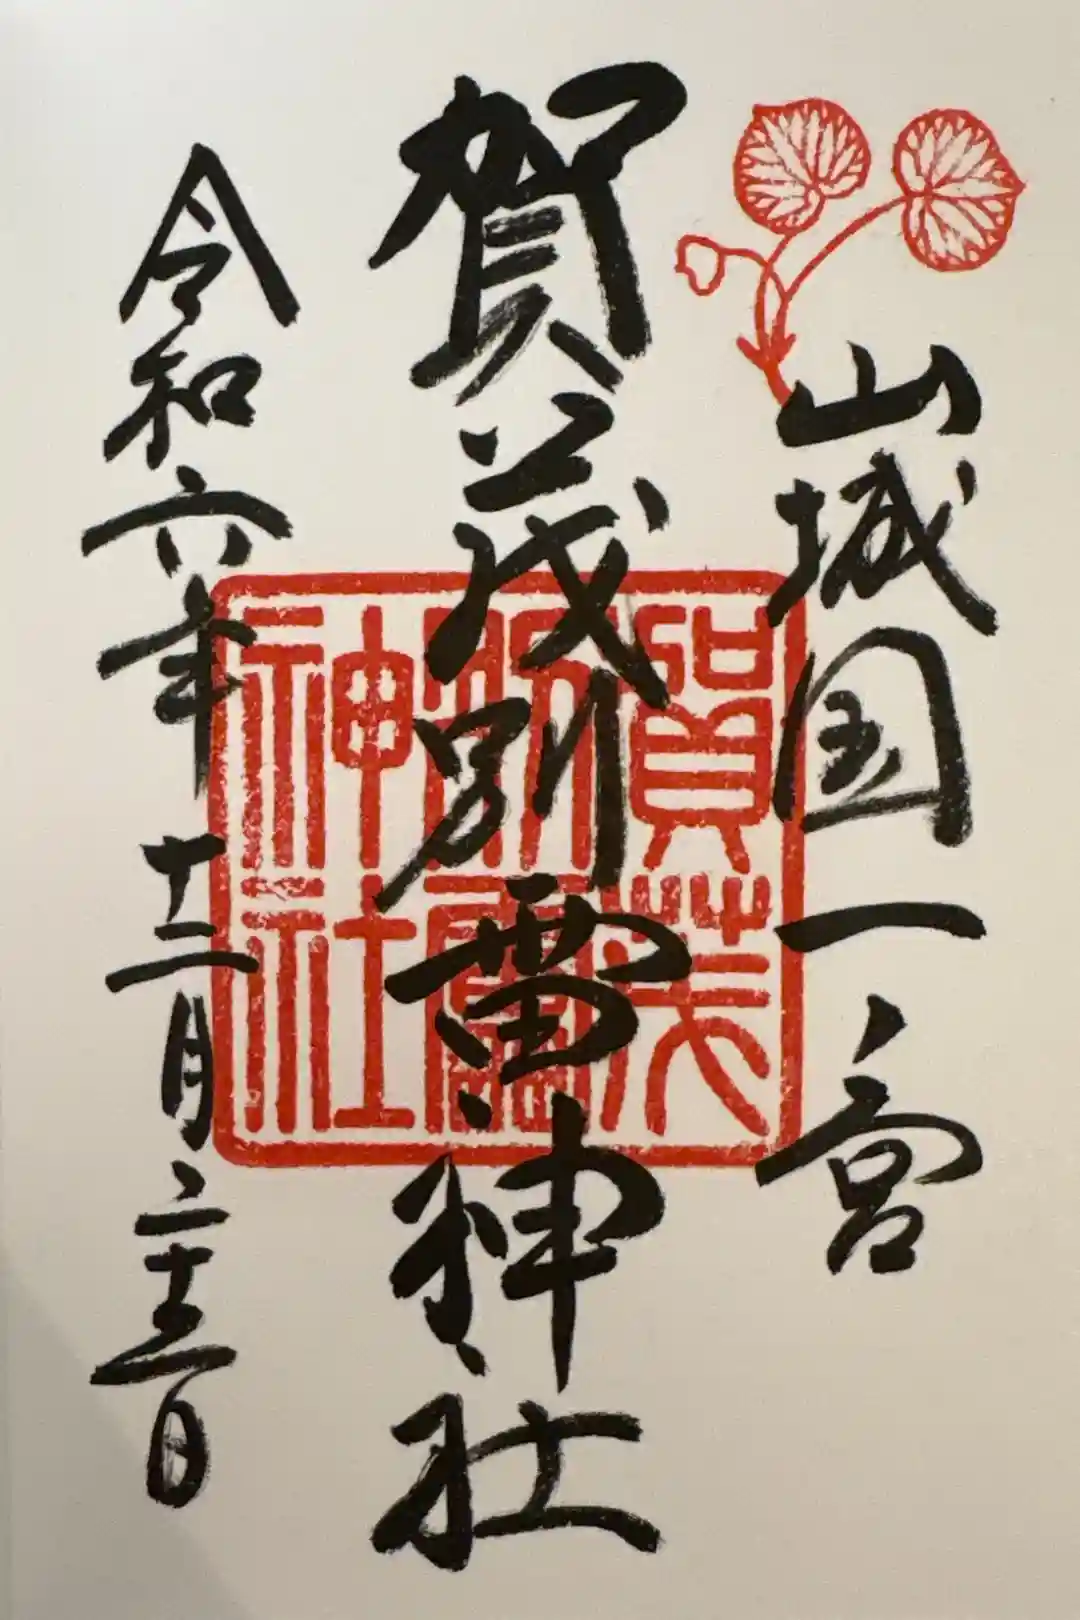 山城国一ノ宮
賀茂別雷神社
令和六年十二月二十三日
賀茂
別雷
神社